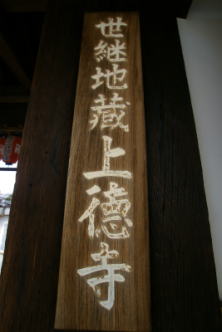 世継地蔵上徳寺